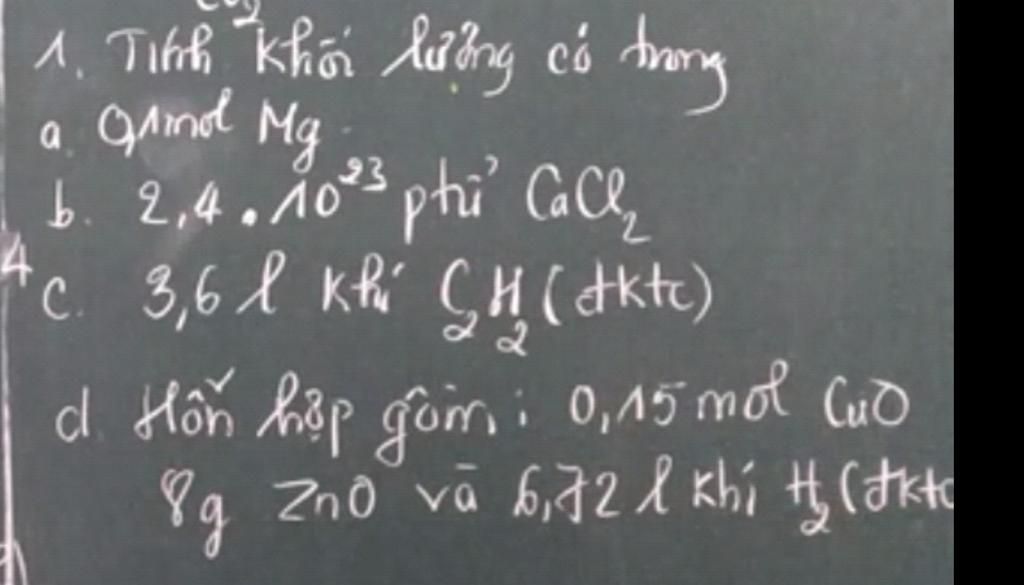 1. Tính khối lượng có trong
a. 0,1mol Mg.
b. 2,4 . 10²³ ptử CaCl₂
4
c. 3,6 l khí C₂H₂ (đktc)
d. Hỗn hợp gồm : 0,15 mol CuO
8g ZnO và 6,72 l khí H₂ (đktc